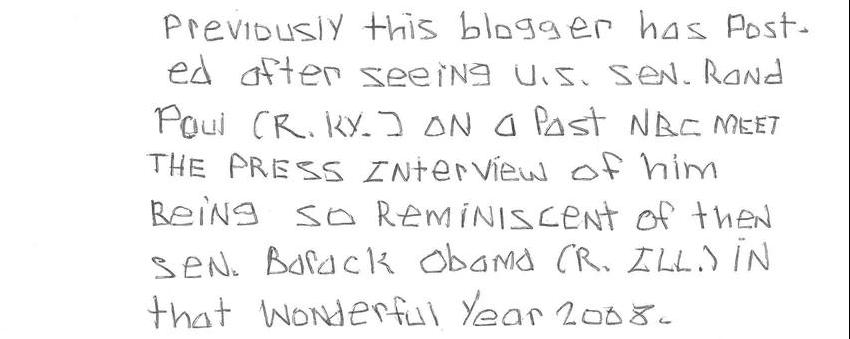 Previously this blogger has Post-
ed after seeing U.S. Sen. Rand
Paul (R. KY.) ON a Past NBC MEET
THE PRESS INterview of him
BeiNg so ReMiNIscent of theN
SeN. Barack Obama (R. ILL.) iN
that WoNderful Year 2008.